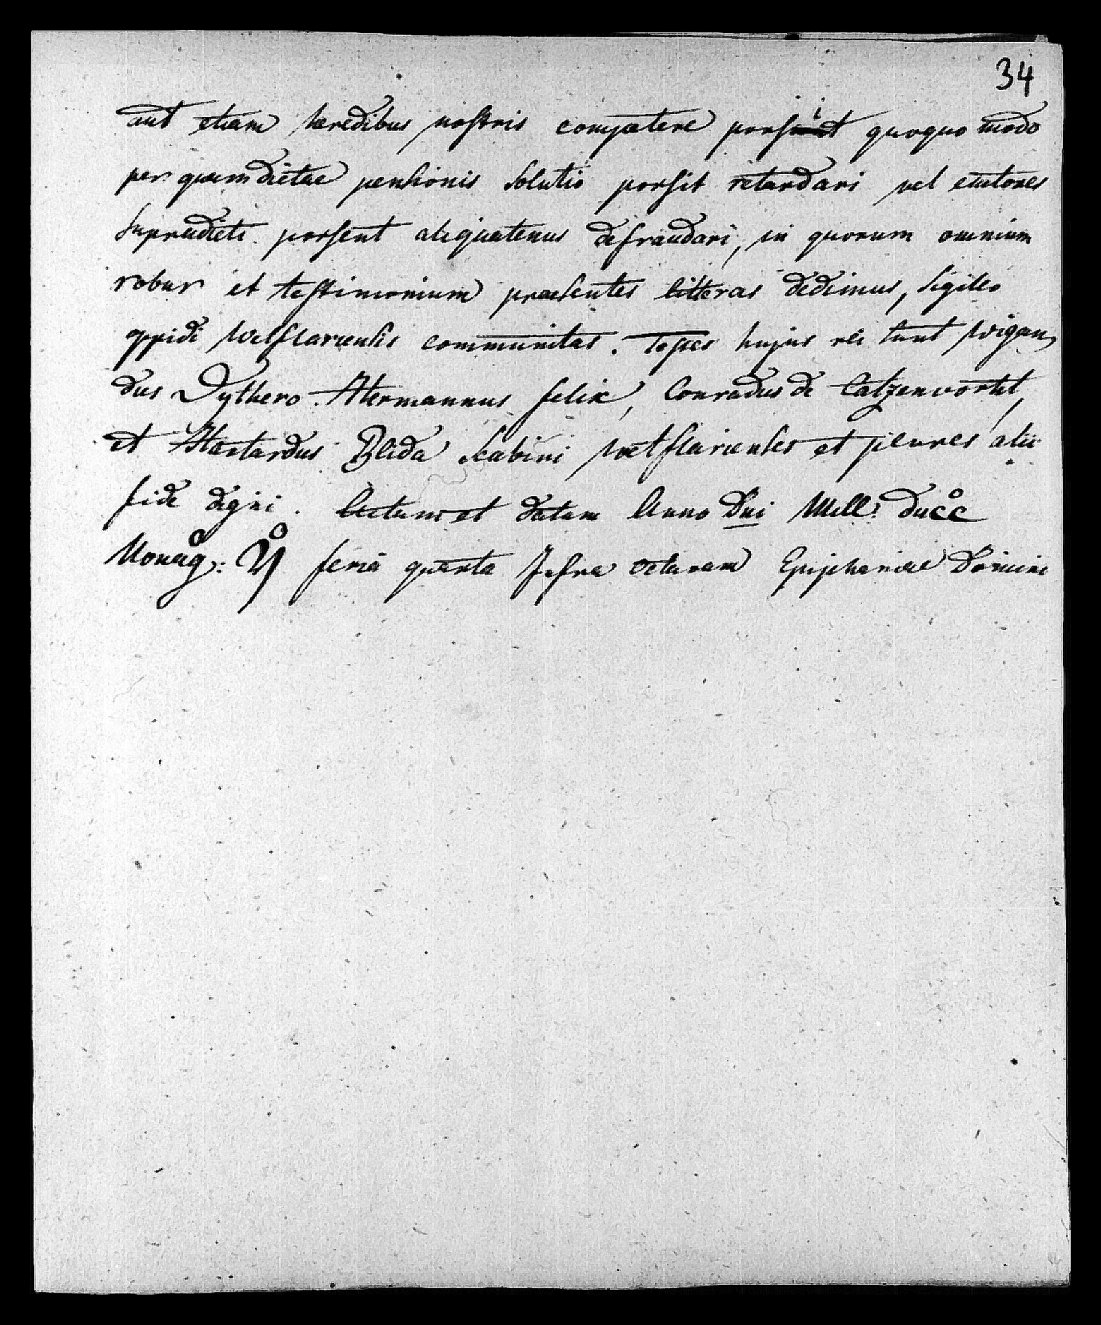 34
aut etiam hæredibus nostris competere possit quoquo modo
per quem dictae pensionis solutio possit retardari vel emtores
supradicti possent aliquatenus defraudari, in quorum omnium
robur et testimonium praesentes litteras dedimus, sigillo
oppidi Wetflariensis communitas. Testes hujus rei sunt Wigan
dus Dythero. Hermannus felix, Conradus de Catzenvortt,
et Hartardus Blida Scabini Wetflarienses et plures alii
fide digni. Actum et datum Anno Dni Mill. ducc
Nonag: V feria quarta Infra octavam Epiphaniae Domini